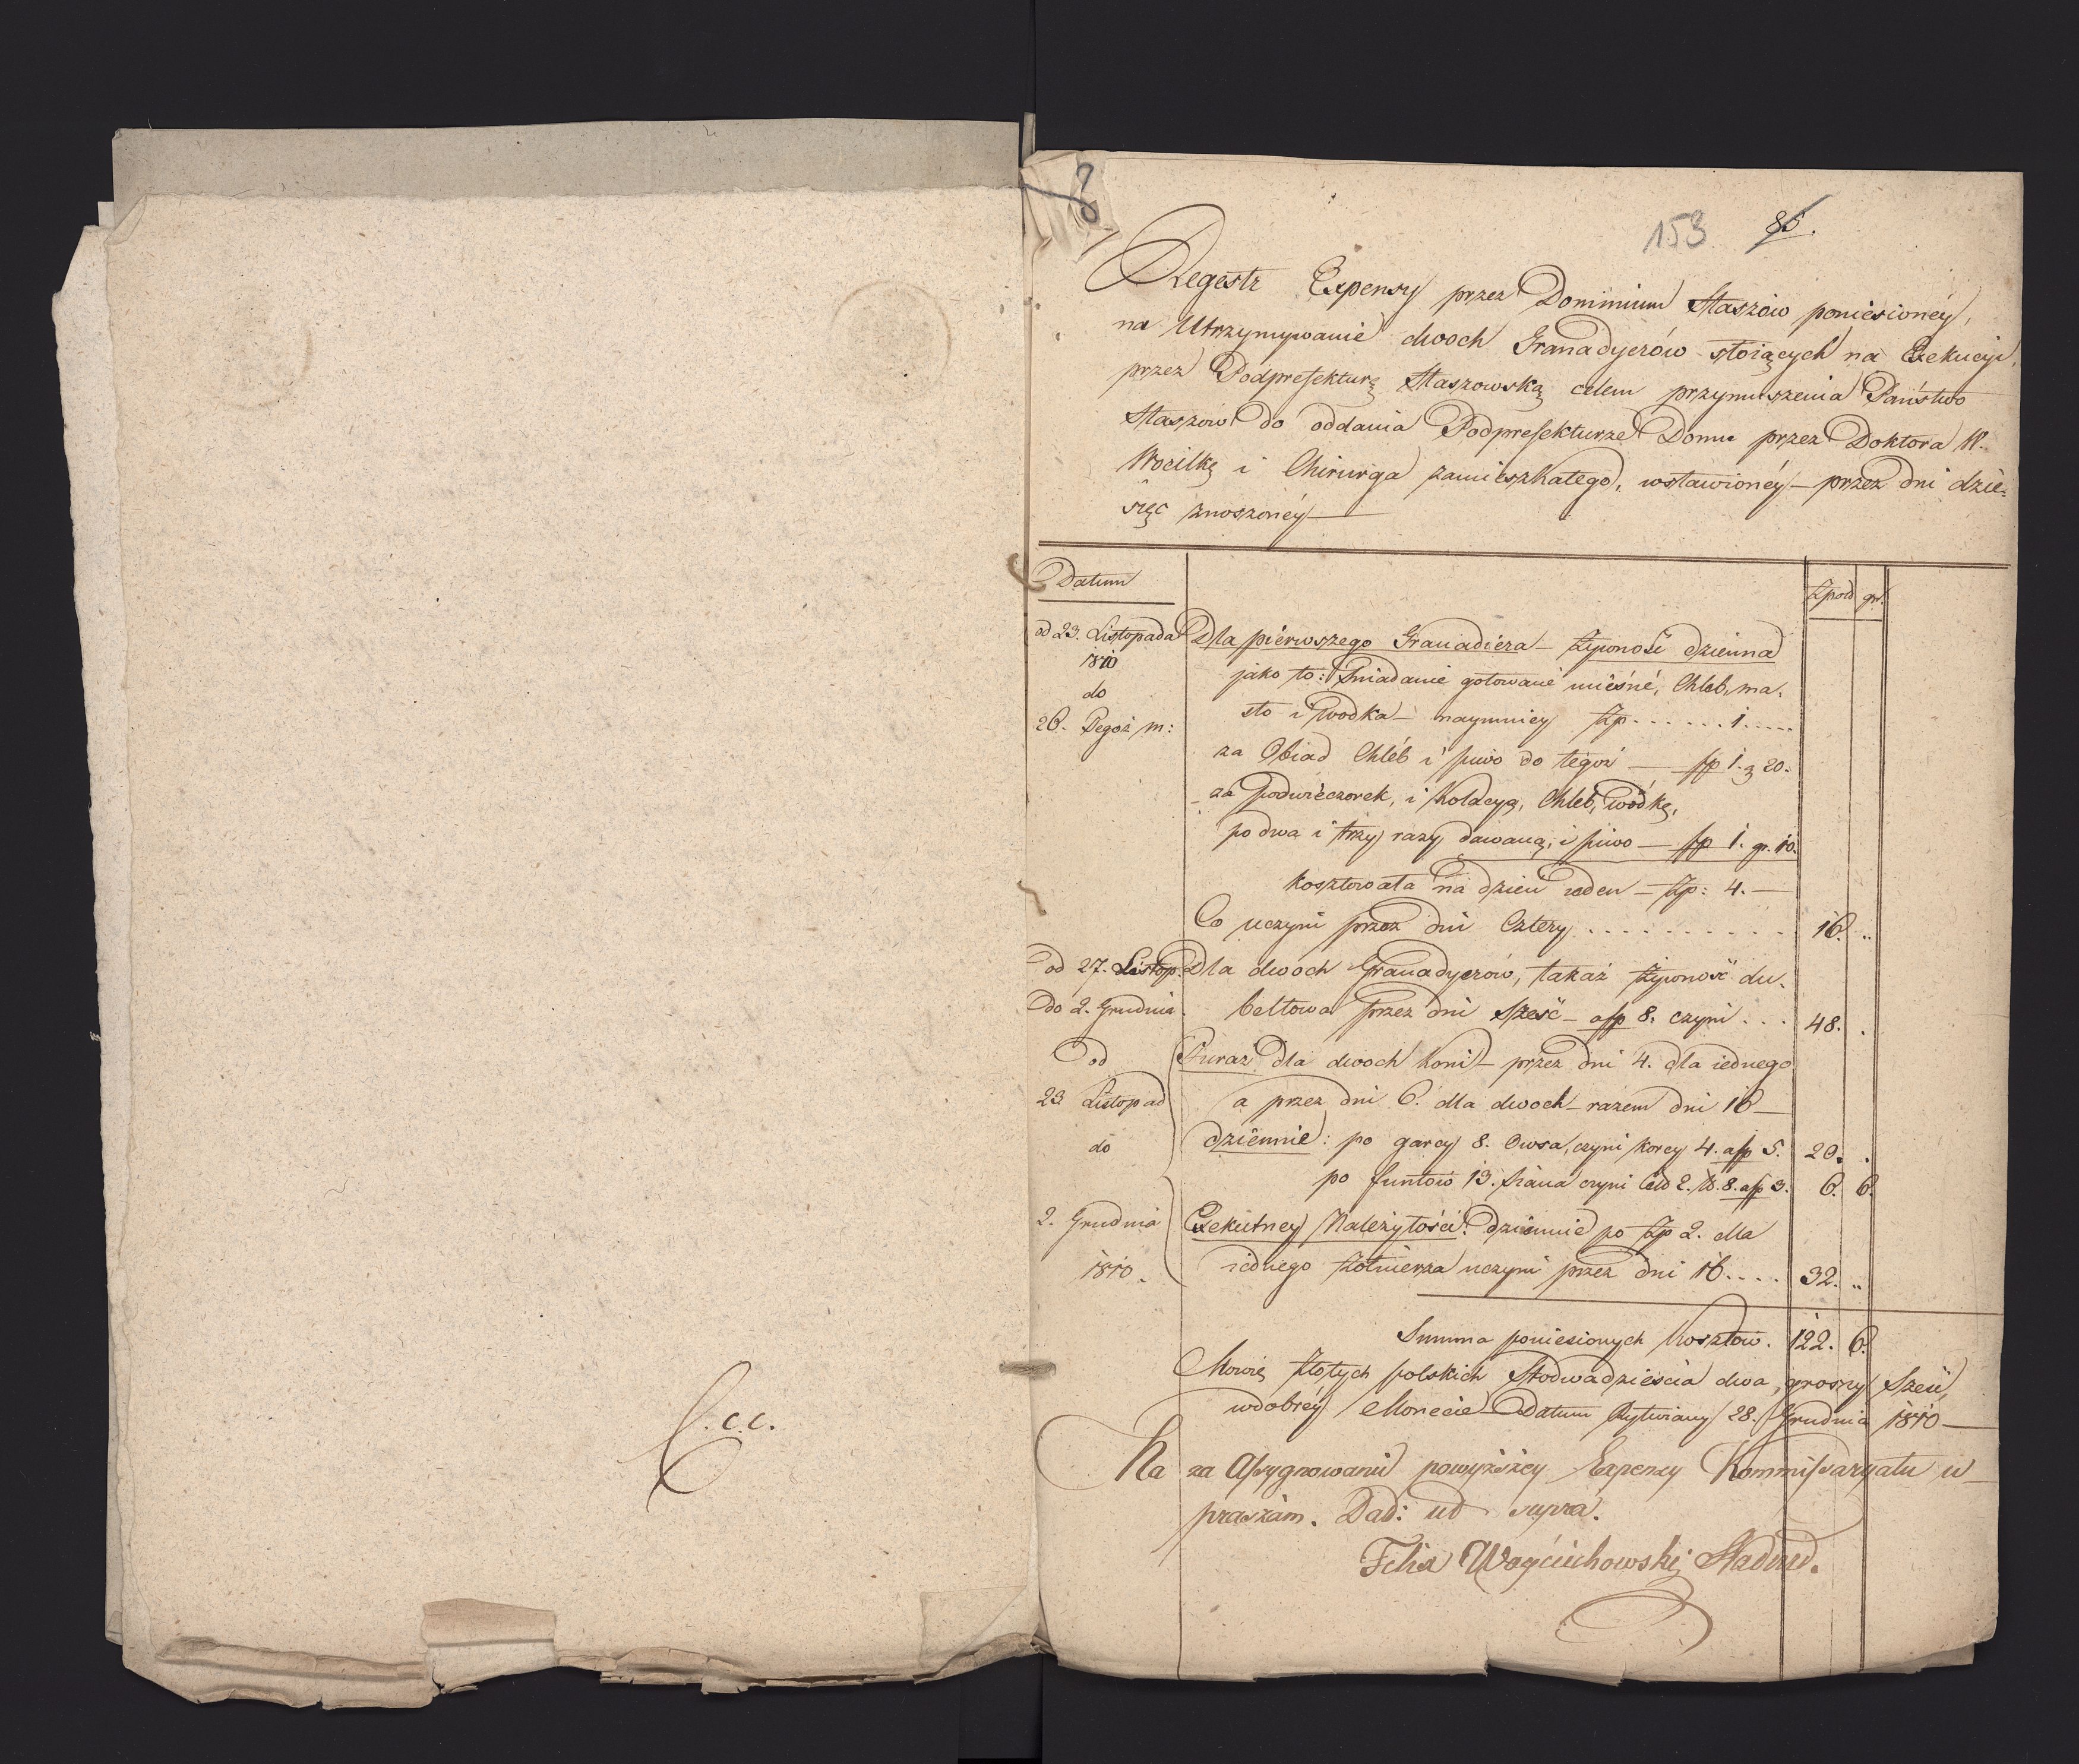 C.c.c.
8
153 85.
Regestr Expensy przez Dominium Staszów poniesionéy,
na Utrzymywanié dwoch Granadyerów stoiących na Exekucyi,
przez Podprefekturę Staszowską celem przymuszenia Państwo
Staszów do oddania Podprefekturze Domu przez Doktora W.
i Chirurga zamieszkałego, wstawionéy – przez dni dzie=
sięć znoszonéy —
Datum
Zpol gr.
od 23. Listopada
1810
do
26. Tegoż m:
Dla piérwszego Granadiera – Żywność dzienna
jako to: Śniadanié gotowané mięsné, Chléb, ma-
sło i wodka – naymniéy Zp. . . . . . 1. . . . .
za Obiad Chléb i piwo do tegoż — fp 1. g 20.
za podwieczorek, i Kolacyą, Chléb, wódkę,
po dwa i trzy razy dawaną, i piwo — fp 1. gr. 10.
kosztowała na dzień ieden – Zp: 4. —
Co uczyni przez dni Cztery . . . . . . . . . . 16. ..
od 27. Listop.
do 2. Grudnia.
Dla dwoch Granadyerów, takaż Żywność du-
beltowa przez dni Sześć – afp 8. czyni . . . 48. .
od
23 Listopad
do
2. Grudnia
1810.
Furaż dla dwoch Koni – przez dni 4. dla iednego
a przez dni 6. dla dwoch – razem dni 16 —
dziennie: po garcy 8. Owsa, czyni korcy 4. afp 5. 20. .
po funtów 13. Siana czyni 2. 8. afp 3. 6. 6.
Exekutney Należytości: dziennie po Zp 2. dla
iednego Żołnierza uczyni przez dni 16. . . . 32. ..
Summa poniesionych Kosztow. 122. 6.
Mowię Złotych polskich Stodwadzieścia dwa, groszy Sześć,
wdobréy Monecie – Datum Rytwiany 28. Grudnia 1810 —
za Assygnowanié powyższey Expensy Kommissaryatu u-
praszam. Dat: ud supra.
Felix Woyciechowski